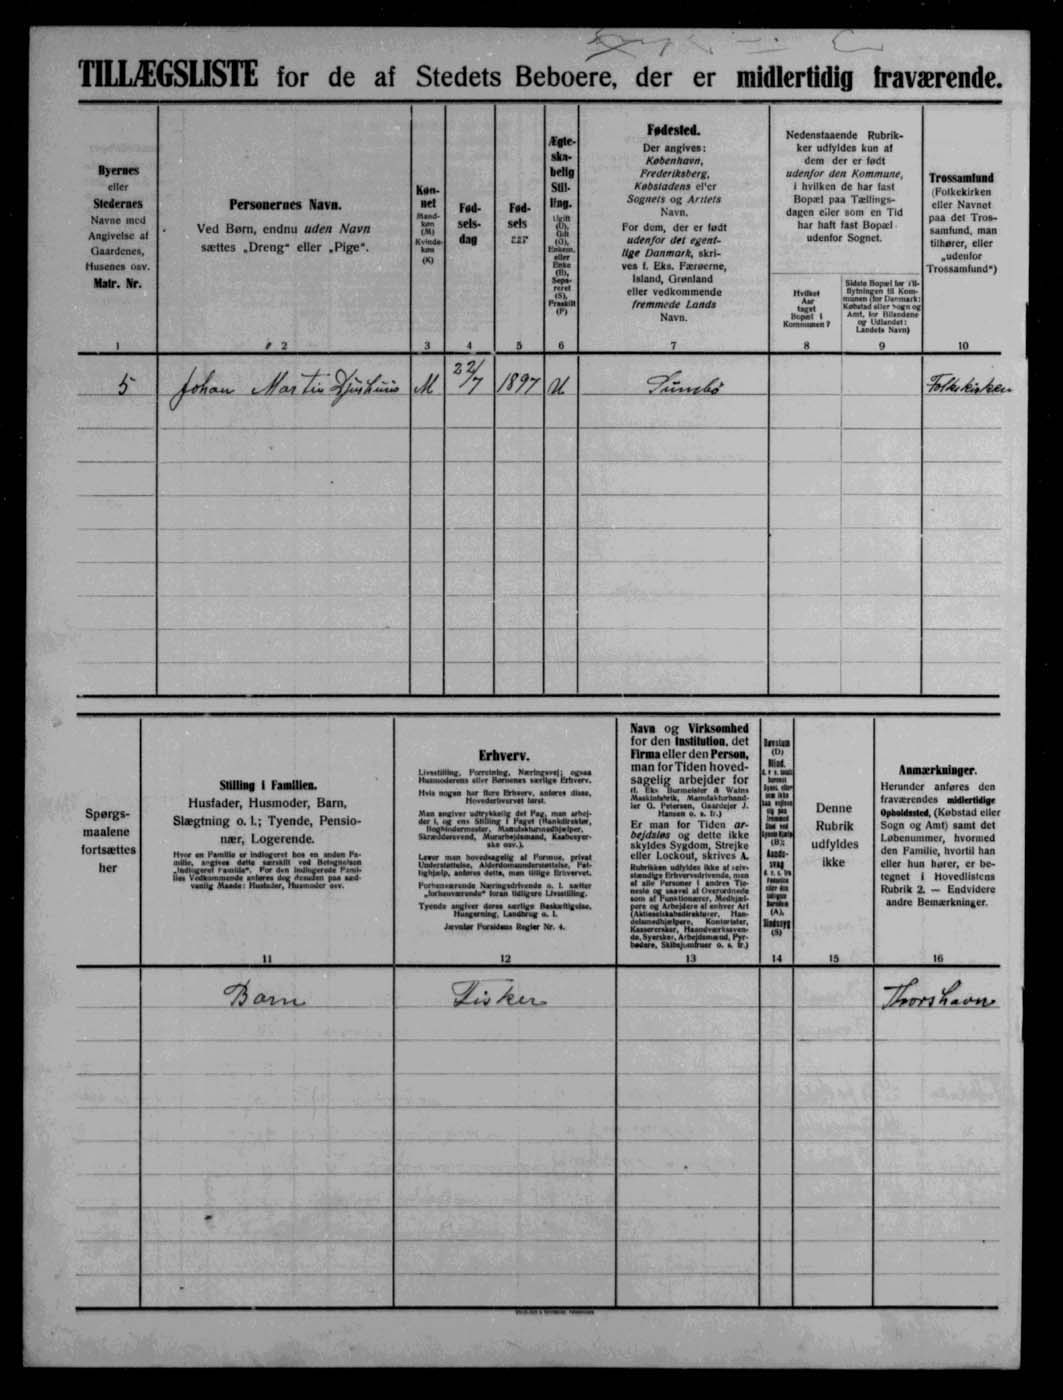 TILLÆGSLISTE for de af Stedets Beboere, der er midlertidig fraværende.
Byernes
eller
Stedernes
Navne med
Angivelse af
Gaardenes,
Husenes osv.
Matr. Nr.
Personernes Navn.
Ved Børn, endnu uden Navn
sættes „Dreng“ eller „Pige“.
Køn-
net
Mand-
køn
(M)
Kvinde-
køn
(K)
Fød-
sels-
dag
Fød-
sels
Ægte-
ska-
belig
Stil-
ling.
Ugift
(U),
Gift
(G),
Enkem.
eller
Enke
(E),
Sepa-
reret
(S),
Fraskilt
(F)
Fødested.
Der angives:
København,
Frederiksberg,
Købstadens eller
Sognets og Amtets
Navn.
For dem, der er født
udenfor det egent-
lige Danmark, skri-
ves f. Eks. Færøerne,
Island, Grønland
eller vedkommende
fremmede Lands
Navn.
Nedenstaaende Rubrik-
ker udfyldes kun af
dem der er født
udenfor den Kommune,
i hvilken de har fast
Bopæl paa Tællings-
dagen eller som en Tid
har haft fast Bopæl
udenfor Sognet.
Hvilket
Aar
taget
Bopæl i
Kommunen?
Sidste Bopæl før Til-
flytningen til Kom-
munen (for Danmark:
Købstad eller Sogn og
Amt, for Bilandene
og Udlandet:
Landets Navn)
Trossamfund
(Folkekirken
eller Navnet
paa det Tros-
samfund, man
tilhører, eller
„udenfor
Trossamfund“)
1 2 3 4 5 6 7 8 9 10
5 Johan Martin Djurhuus M 22/7 1897 U Sumbø Folkekirken
Spørgs-
maalene
fortsættes
her
Stilling i Familien.
Husfader, Husmoder, Barn,
Slægtning o. l.; Tyende, Pensio-
nær, Logerende.
Hvor en Familie er indlogeret hos en anden Fa-
milie, angives dette særskilt ved Betegnelsen
„indlogeret Familie“. For den indlogerede Fami-
lies Vedkommende anføres dog desuden paa sæd-
vanlig Maade: Husfader, Husmoder osv.
Erhverv.
Livsstilling, Forretning, Næringsvej; ogsaa
Husmoderens eller Børnenes særlige Erhverv.
Hvis nogen har flere Erhverv, anføres disse,
Hovederhvervet først.
Man angiver udtrykkelig det Fag, man arbej-
der i, og ens Stilling i Faget (Bankdirektør,
Bogbindermester, Manufakturhandler,
Skræddersvend, Murarbejdsmand, Kaabesyer-
ske osv.).
Lever man hovedsagelig af Formue, privat
Understøttelse, Alderdomsunderstøttelse, Fat-
tighjælp, anføres dette, man tillige Erhvervet.
Forhenværende Næringsdrivende o. l. sætter
„forhenværende“ foran tidligere Livsstilling.
Tyende angiver deres særlige Beskæftigelse,
Husgerning, Landbrug o. l.
Jævnfør Forsidens Regler Nr. 4.
Navn og Virksomhed
for den Institution, det
Firma eller den Person,
man for Tiden hoved-
sagelig arbejder for
(f. Eks. Burmeister & Wains
Maskinfabrik, Manufakturhand-
ler G. Petersen, Gaardejer J.
Hansen o. s. fr.)
Er man for Tiden ar-
bejdsløs og dette ikke
skyldes Sygdom, Strejke
eller Lockout, skrives A.
Rubrikken udfyldes ikke af selv-
stændige Erhvervsdrivende, men
af alle Personer i andres Tje-
neste og saavel af Overordnede
som af Funktionærer, Medhjæl-
pere og Arbejdere af enhver Art
(Aktieselskabsdirektører, Han-
delsmedhjælpere, Kontorister,
Kasserersker, Haandværkssven-
de, Syersker, Arbejdsmænd, Fyr-
bødere, Skibsjomfruer o. s. fr.)
Døvstum
(D)
Blind,
(B);
Aands-
svag
(A),
Sindssyg
(S)
Denne
Rubrik
udfyldes
ikke
Anmærkninger.
Herunder anføres den
fraværendes midlertidige
Opholdssted, (Købstad eller
Sogn og Amt) samt det
Løbenummer, hvormed
den Familie, hvortil han
eller hun hører, er be-
tegnet i Hovedlistens
Rubrik 2. — Endvidere
andre Bemærkninger.
11 12 13 14 15 16
Barn Fisker Thorshavn